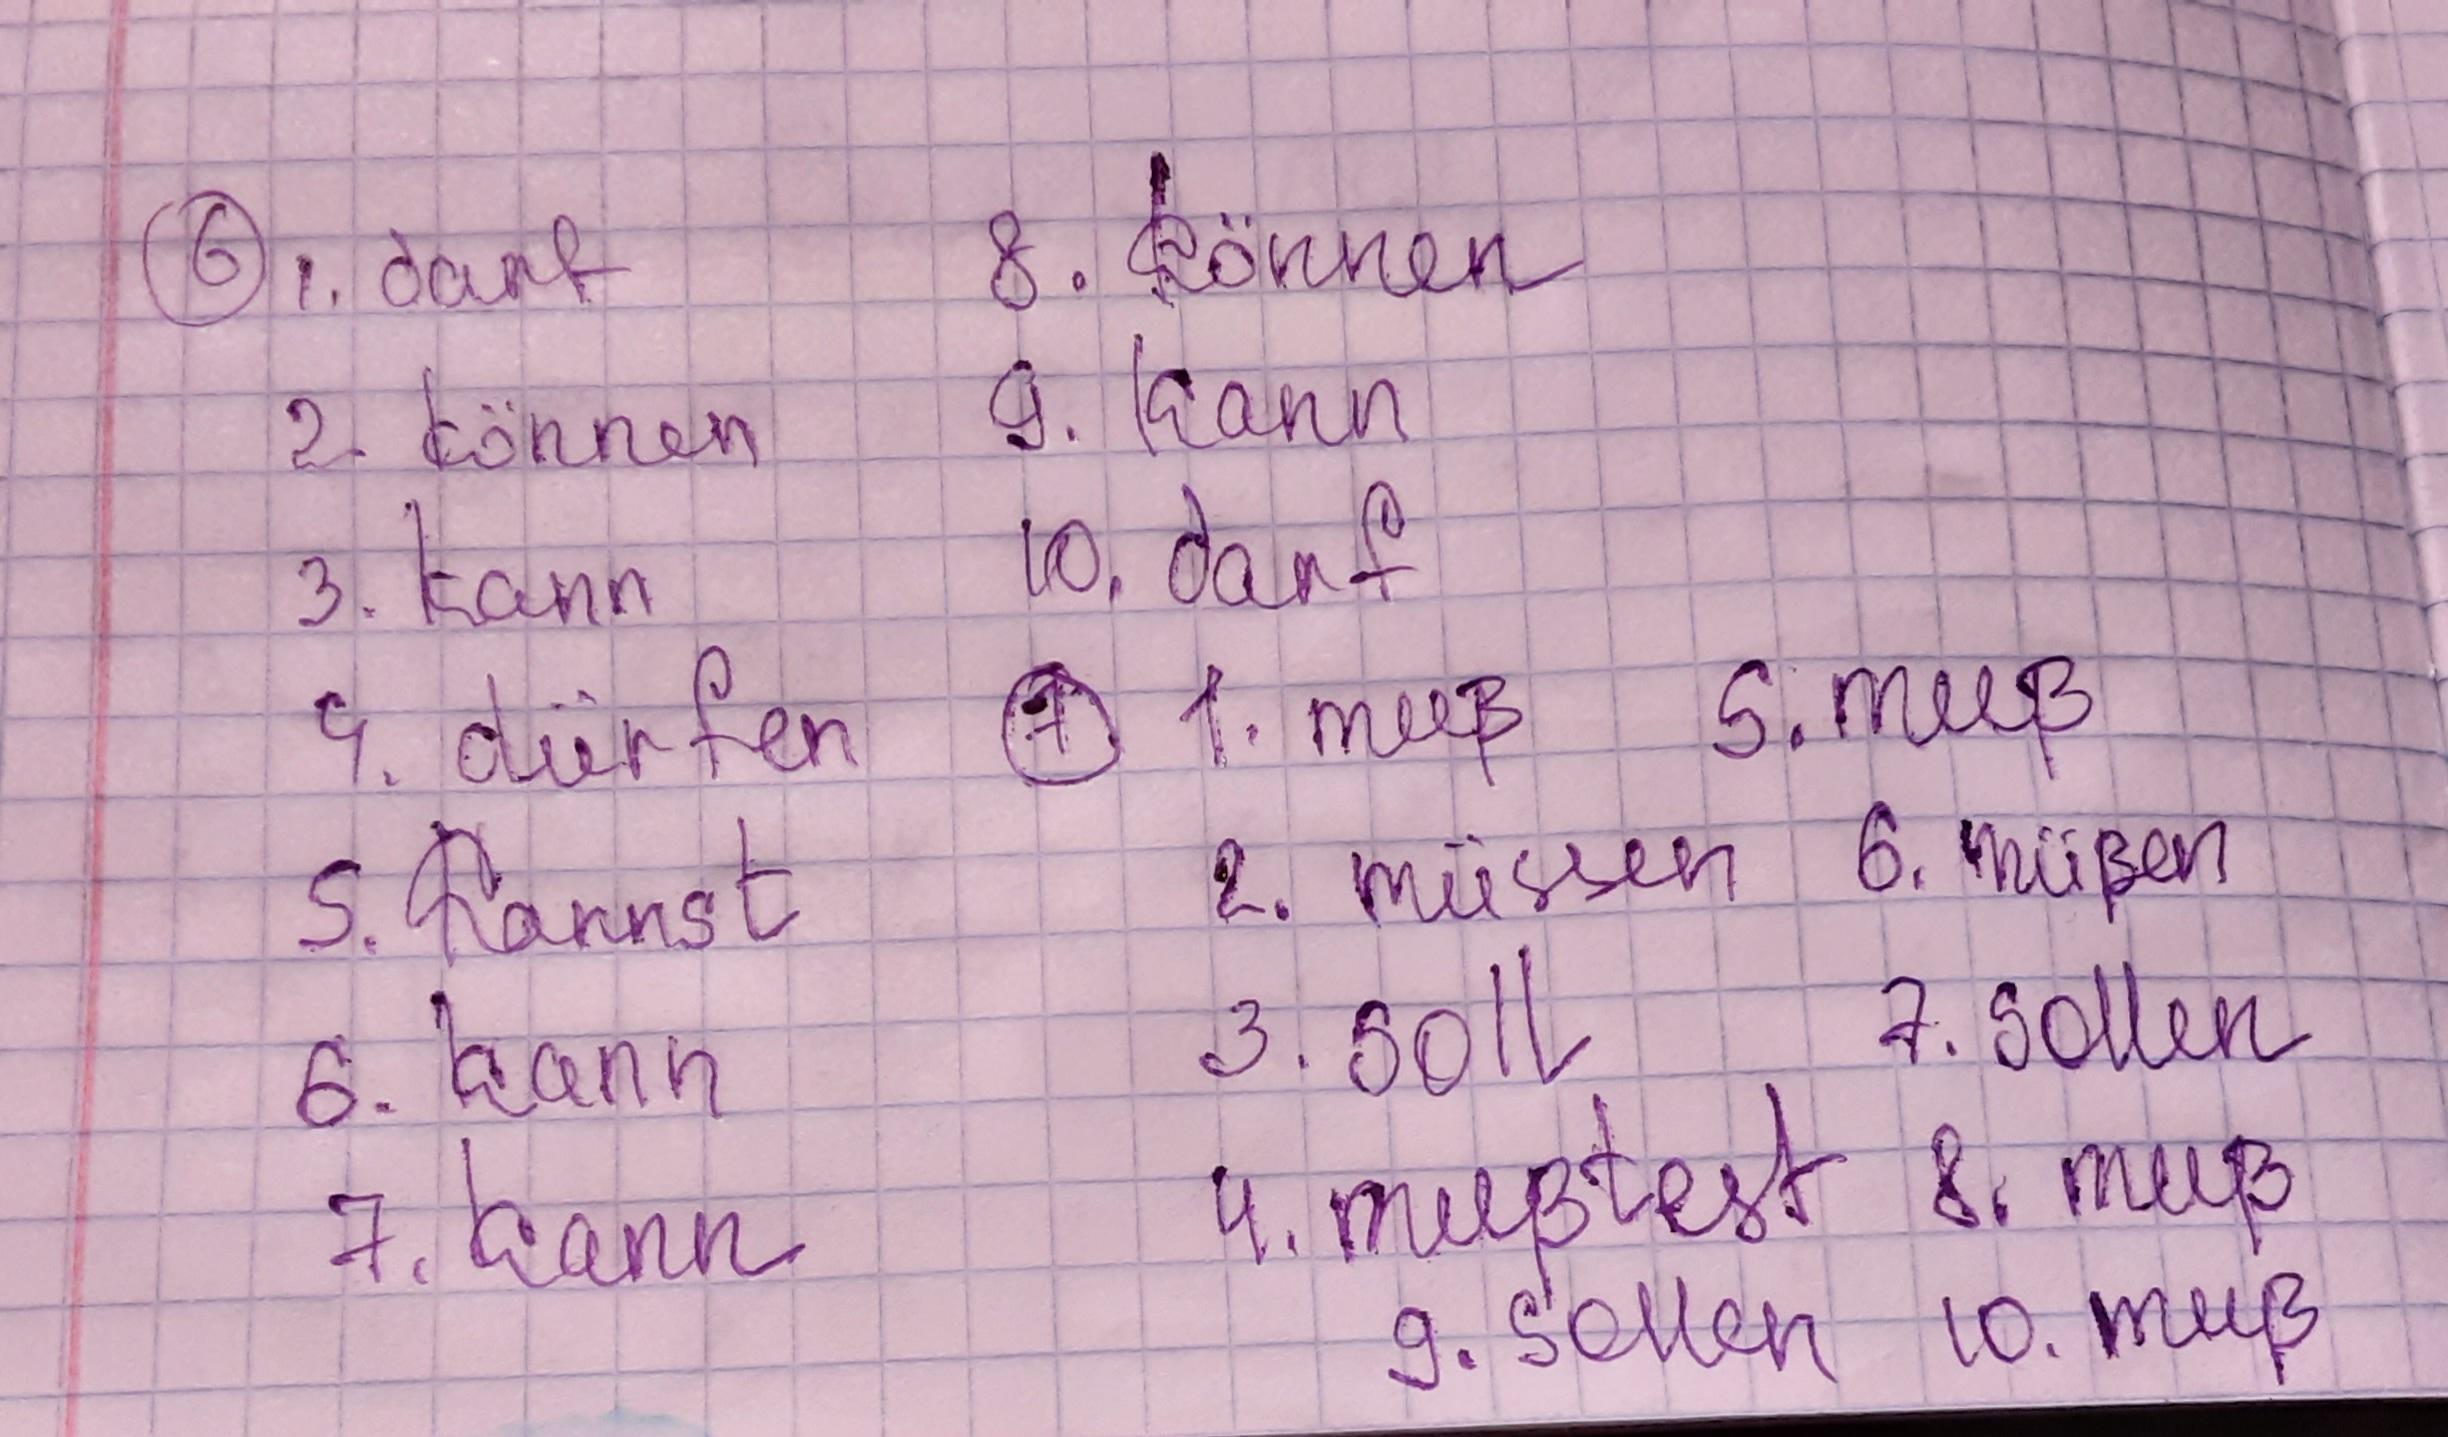 6 1. darf
2. können
3. kann
4. dürfen
5. kannst
6. kann
7. kann
8. können
9. kann
10. darf
7 1. muß
2. müssen
3. soll
4. mußtest
5. muß
6. müßen
7. sollen
8. muß
9. sollen
10. muß